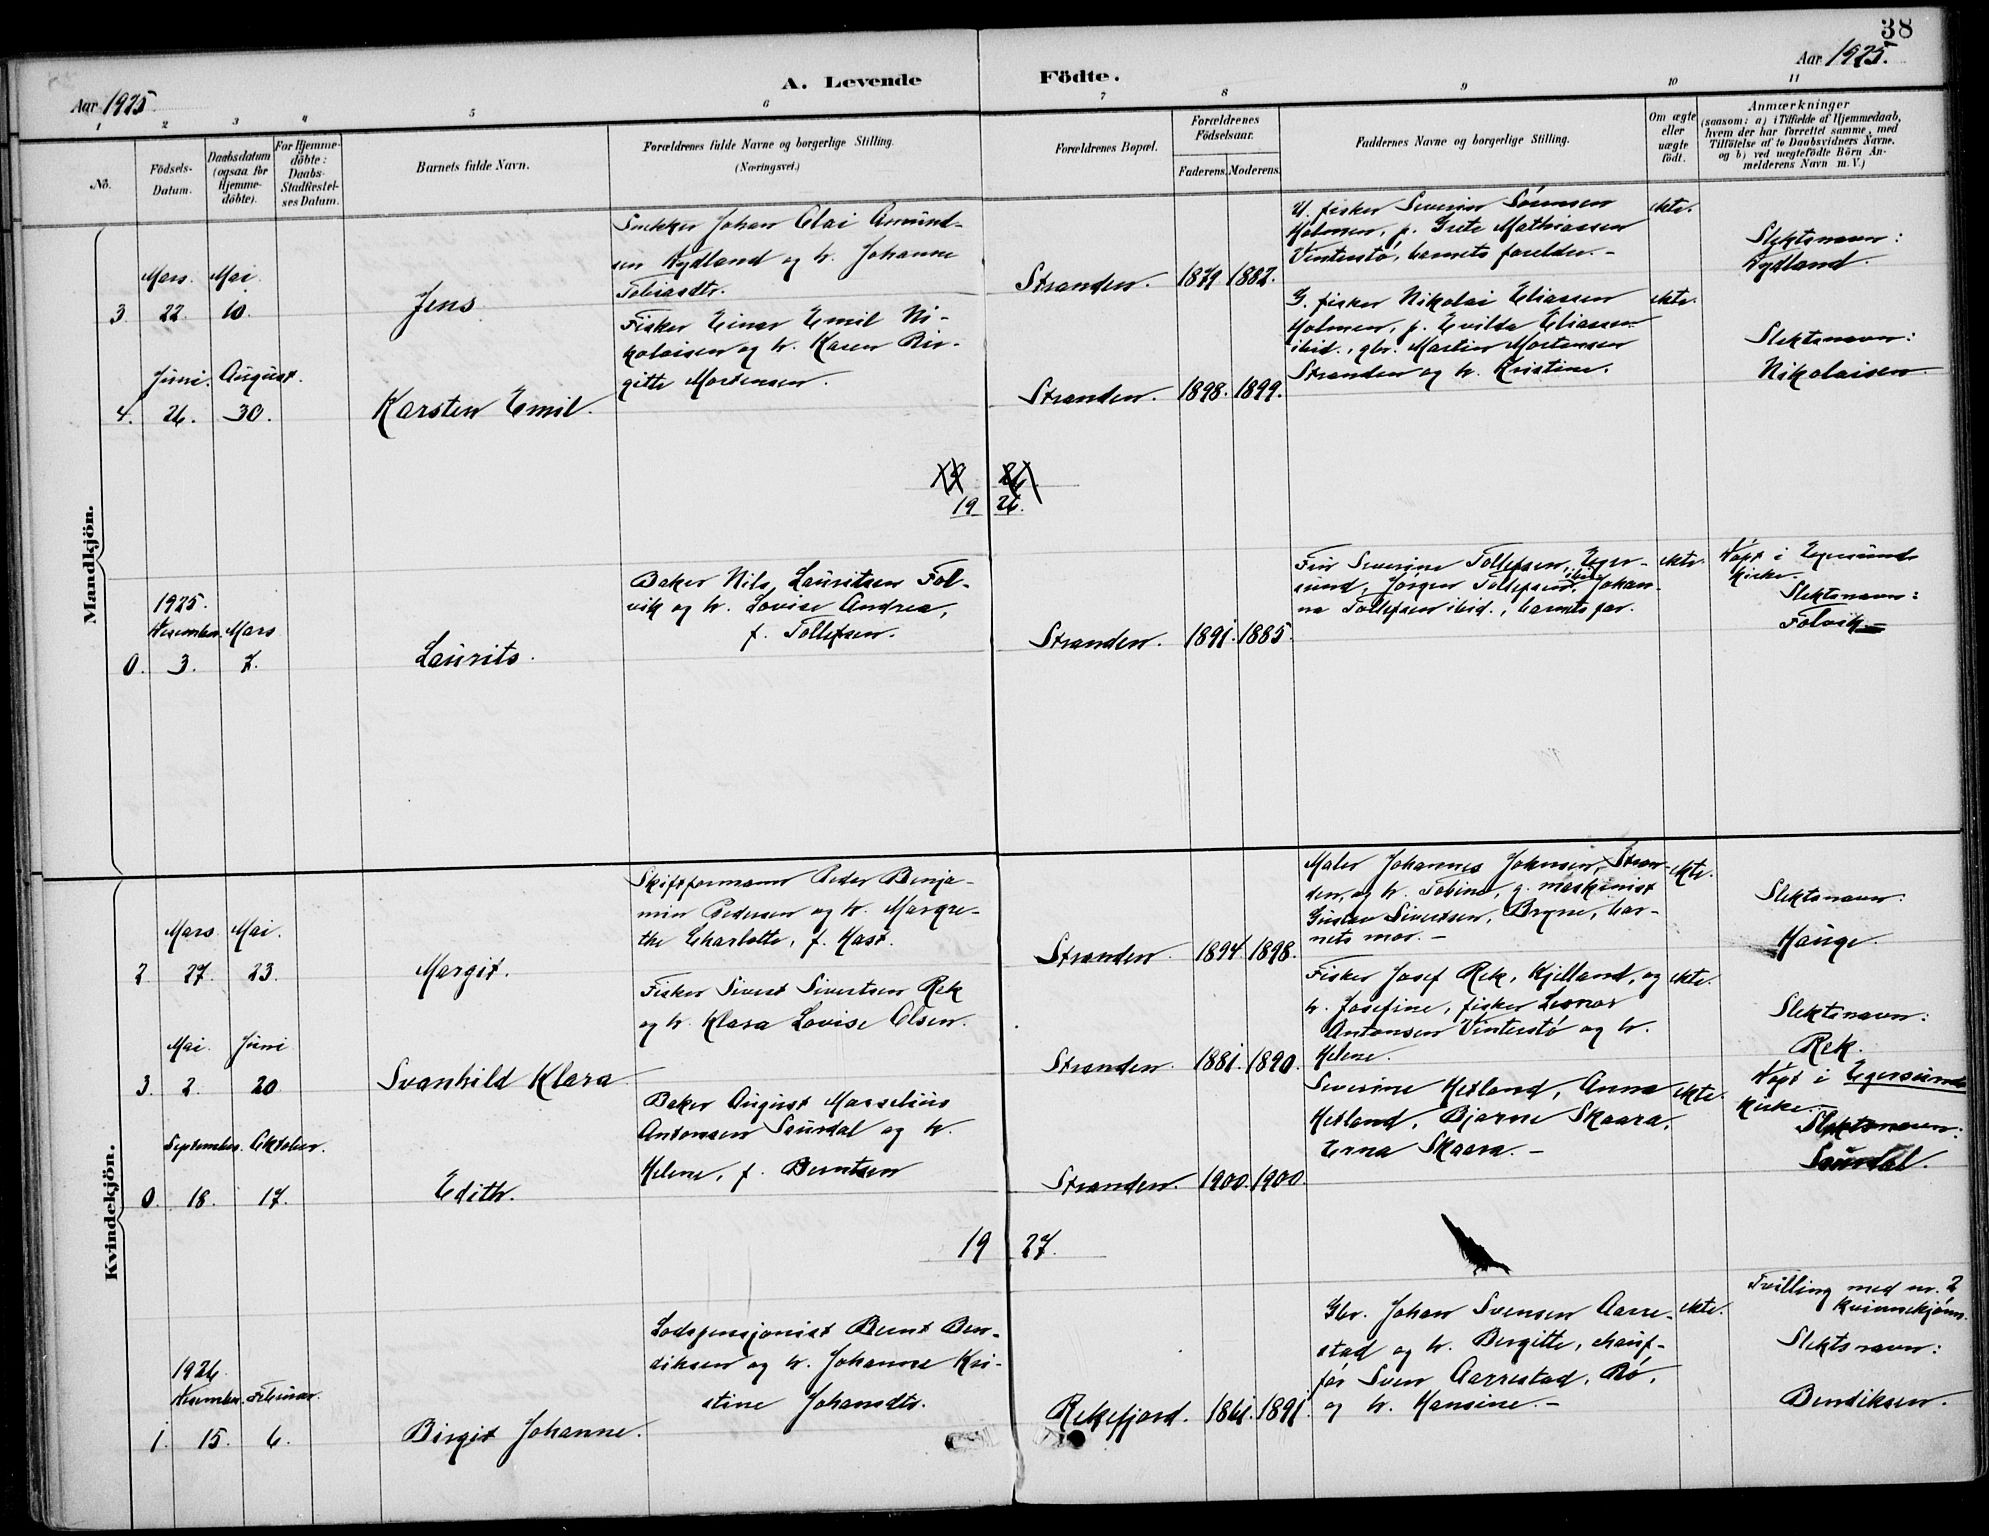 38
Aar 1925.
A. Levende Födte.
Aar 1925.
1 2 3 4 5 6 7 8 9 10 11
No.
Födsels-
Datum.
Daabsdatum
(ogsaa for
Hjemme-
döbte).
For Hjemme-
döbte:
Daabs-
Stadfæstel-
ses Datum.
Barnets fulde Navn.
Forældrenes fulde Navne og borgerlige Stilling.
(Næringsvei.)
Forældrenes Bopæl.
Forældrenes
Födselsaar.
Faderens. Moderens.
Faddernes Navne og borgerlige Stilling.
Om ægte
eller
uægte
födt.
Anmærkninger
(saasom: a) i Tilfælde af Hjemmedaab,
hvem der har forrettet samme, med
Tilföielse af to Daabsvidners Navne,
og b) ved uægtefödte Börn An-
melderens Navn m. V.)
Mandkjön.
3. Mars 22. Mai 10.
Jens
Snekker Johan Olai Amund-
sen Nydland og h. Johanne
Tobiasdtr.
Stranden. 1879 1882.
U. fisker Severin Sörensen
Holmen, p. Grete Mathiassen
Vinterstö, barnets forelder. -
ekte.
Slektsnavn:
Nydland.
4. Juni. 26. August. 30.
Karsten Emil.
Fisker Einar Emil Ni-
kolaisen og h. Karen Bir-
gitte Mortensen.
Stranden. 1898. 1899.
G. fisker Nikolai Eliassen
Holmen, p. Evilda Eliassen
ibid., gbr. Martin Mortensen
Stranden og h. Kristine.
ekte.
Slektsnavn:
Nikolaisen
19 26.
0. 1925. Desember. 3. Mars 7.
Laurits.
Baker Nils Lauritsen Fol-
vik og h. Lovise Andrea,
f. Tollefsen.
Stranden. 1891. 1885.
Frk Severine Tollefsen, Eger-
sund, Jörgen Tollefsen ibid, Johan-
na Tollefsen ibid., barnets far.
ekte.
Döpt i Egersunds
kirke.
Slektsnavn:
Folvik. -
Kvindekjön.
2 Mars 27. Mai. 23.
Margit.
Skiftformann Peder Benja-
min Pedersen og h. Margre-
the Charlotte, f. Hast.
Stranden. 1894 1898.
Maler Johannes Johnsen, Stran-
den, og h. Tobine, g. maskinist
Gustav Sivertsen, Bryne, bar-
nets mor. -
ekte.
Slektsnavn:
Hauge.
3. Mai. 2. Juni 20
Svanhild Klara
Fisker Sivert Sivertsen Rek
og h. Klara Lovise Olsen.
Stranden. 1881. 1890.
Fisker Josef Rek, Kjelland, og
h. Josefine, fisker Leonar
Antonsen Vinterstö og h.
Helene.
ekte.
Slektsnavn:
Rek.
0. September. 18. Oktober. 17.
Edith.
Baker August Marselius
Antonsen Saurdal og h.
Helene, f. Berntsen
Stranden. 1900. 1900.
Severine Hetland, Anna
Hetland, Bjarne Skaara,
Erna Skaara. -
ekte
Döpt i Egersunds
kirke. -
Slektsnavn:
Saurdal.
19 27.
1. 1926. Desember. 15. Februar. 6.
Birgit Johanne.
Lodspensjonist Bernt Ben-
diksen og h. Johanne Kri-
stine Johansdtr.
Rekefjord. 1861. 1891.
Gbr. Johan Svensen Aarre-
stad og h. Bergitte, chauf-
för Sven Aarrestad, Rö,
og h. Hansine. -
ekte.
Tvilling med nr. 2
kvinnekjönn.
Slektsnavn:
Bendiksen.